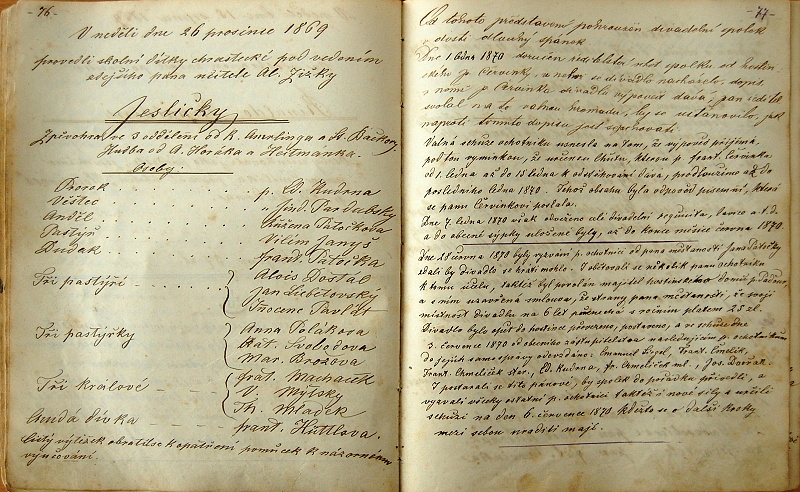 - 76 -
V neděli dne 26 prosince 1869
provedli školní dítky chrastecké pod vedením
zdejšího pána učitele Al. Zišky
Jesličky
Zpěvohra ve 3 odděleních od K. Amerlinga a B. Bačkory
Hudba od A. Horáka a Heřmánka.
Osoby:
Prorok . . . . p. Ed. Kudrna
Věštec . . . . " Jind. Pardubský
Anděl . . . . Anžena Patočkova
Pastýř . . . . Vilím Janyš
Dudák . . . . frant. Patočka
Tři pastýři - Alois Dostál
Jan Libčtovský
Inocenc Pavlát
Tři pastýřky Anna Polákova
Kat. Svobodova
Mar. Brožova
Tři králové - frát. Machaček
V. Mýtský
Th. Mládek
Chudá dívka - frant. Hüttlova.
Čistý výtěžek obrátil se k opatření pomůcek k názornému
vyučování.
- 77 -
Od tohoto představení pohroužen divadelní spolek
v dlouhý spánek
Dne 1 ledna 1870 doručen řediteli spolku od
p. Červinky, v se divadlo nacházelo, dopis
v němž p. Červinka divadlu výpověď dává, pan ředitel
svolal na to valnou hromadu, by se ustanovilo, jak
naproti tomuto dopisu jest se zachovati
Valná schůze ochotníků usnesla na tom, že výpověď přijímá
pod tou vymínkou, že určenou lhůtu, kterou p. frant. Červinka
od 1. ledna až do 15 ledna k odstěhování dává, prodloužena až do
posledního ledna 1870. Tehož obsahu byla odpověď písemní, která
se panu Červinkovi poslala.
Dne 7. ledna 1870 však odvezeno celé divadelní requisita, lavice a. t. d.
a do obecné sýpky uloženy byly, až do konce měsíce června 1870.
Dne 28 června 1870 byly vyzváni p. ochotníci od pana měšťanosti Jana Patočky
zdali by divadlo se hráti mohlo. I obětovali se několik panů ochotníků
k tomu účelu, taktéž byl povolán majitel domu p. Pačen,
a s ním uzavřena smlouva, ze strany pana měšťanosti, že svoji
místnost divadlu na 6 let pronechá s ročním platem 25 zl.
Divadlo bylo opět do hostince převezeno, postaveno, a ve schůzi dne
3. července 1870 od obecního zastupitelstva následujícím p. ochotníkům
do jejich samosprávy odevzdáno: Emanuel Digl, Frant. Čmelík,
Frant. Chmelíček star., Ed. Kudrna, fr. Chmelíček ml., Jos. Dvořák.
I postarali se tito pánové, by spolek do pořádku přivedli, a
vyzvali všecky ostatní p. ochotníci taktéž i nové síly a určili
schůzi na den 6. července 1870 kdežto se o další kroky
mezi sebou uraditi mají.